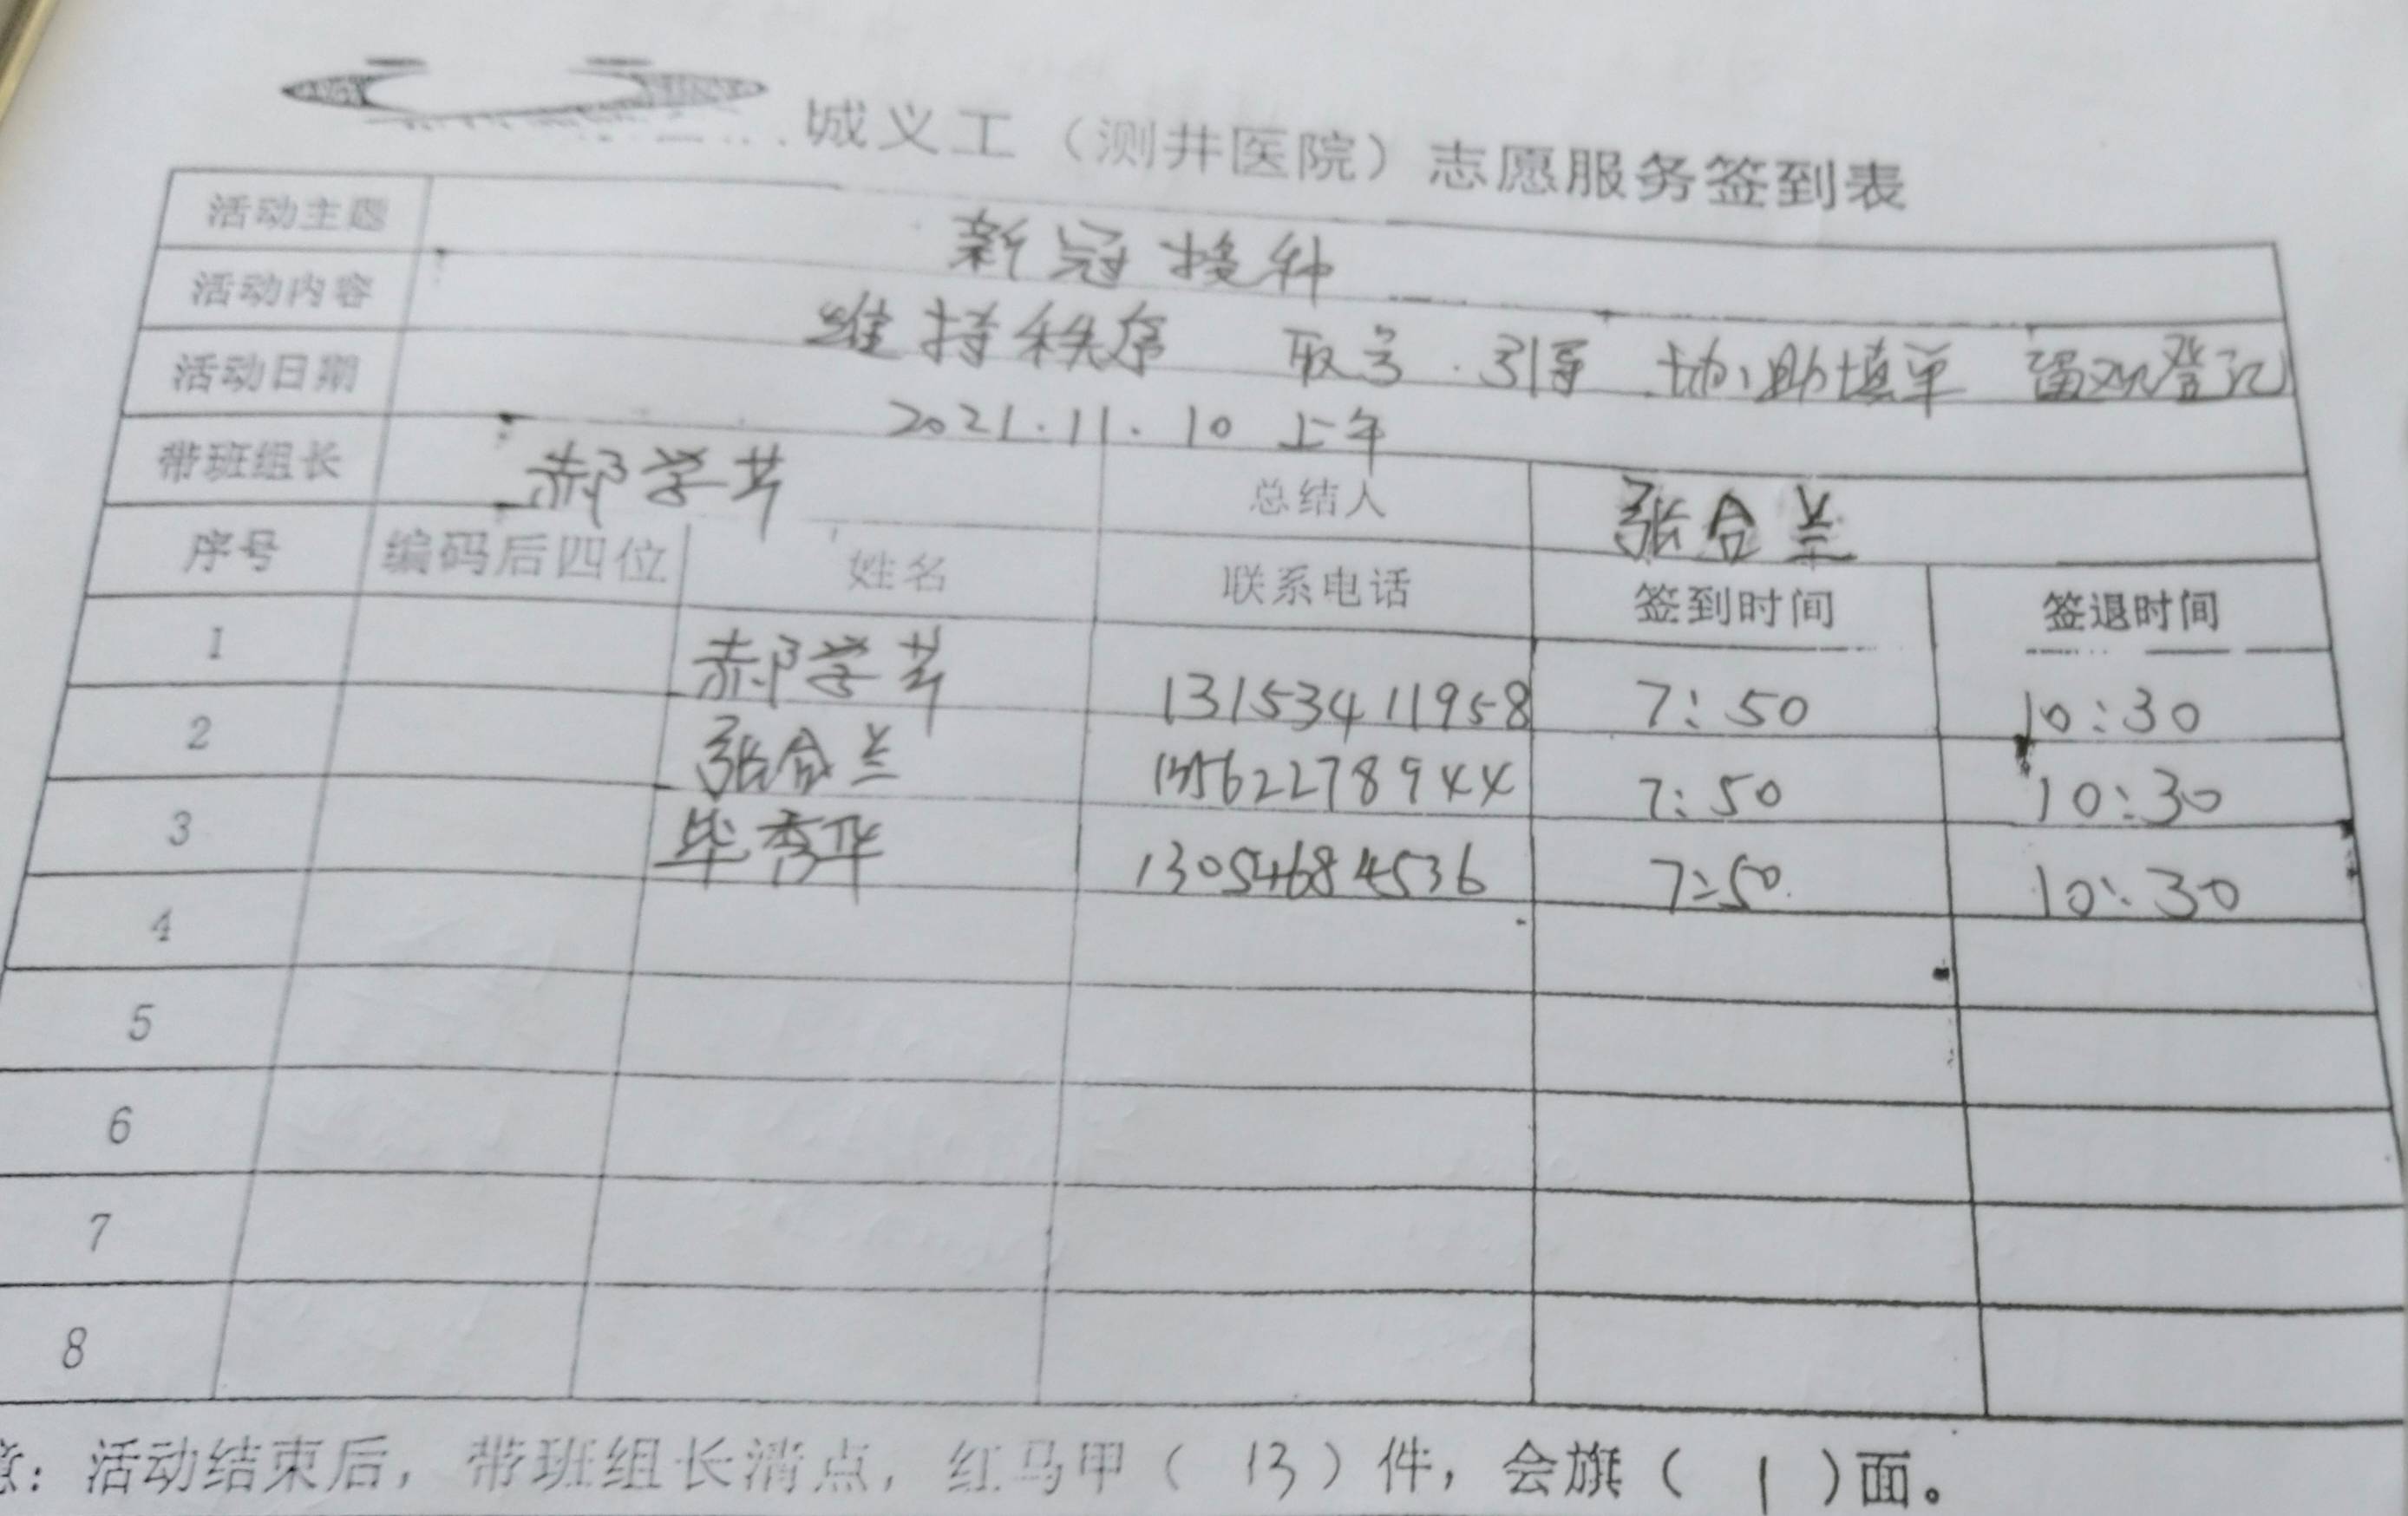 城义工（测井医院）志愿服务签到表
活动主题 新冠接种
活动内容 维持秩序 取号·引导 协助填单 留观登记
活动日期 2021.11.10 上午
带班组长 郝学芳 总结人 张合兰
序号 编码后四位 姓名 联系电话 签到时间 签退时间
1 郝学芳 13153411958 7:50 10:30
2 张合兰 7:50 10:30
3 毕秀华 13054684536 7:50 10:30
4
5
6
7
8
意：活动结束后，带班组长清点，红马甲（ 13 ）件，会旗（ 1 ）面。